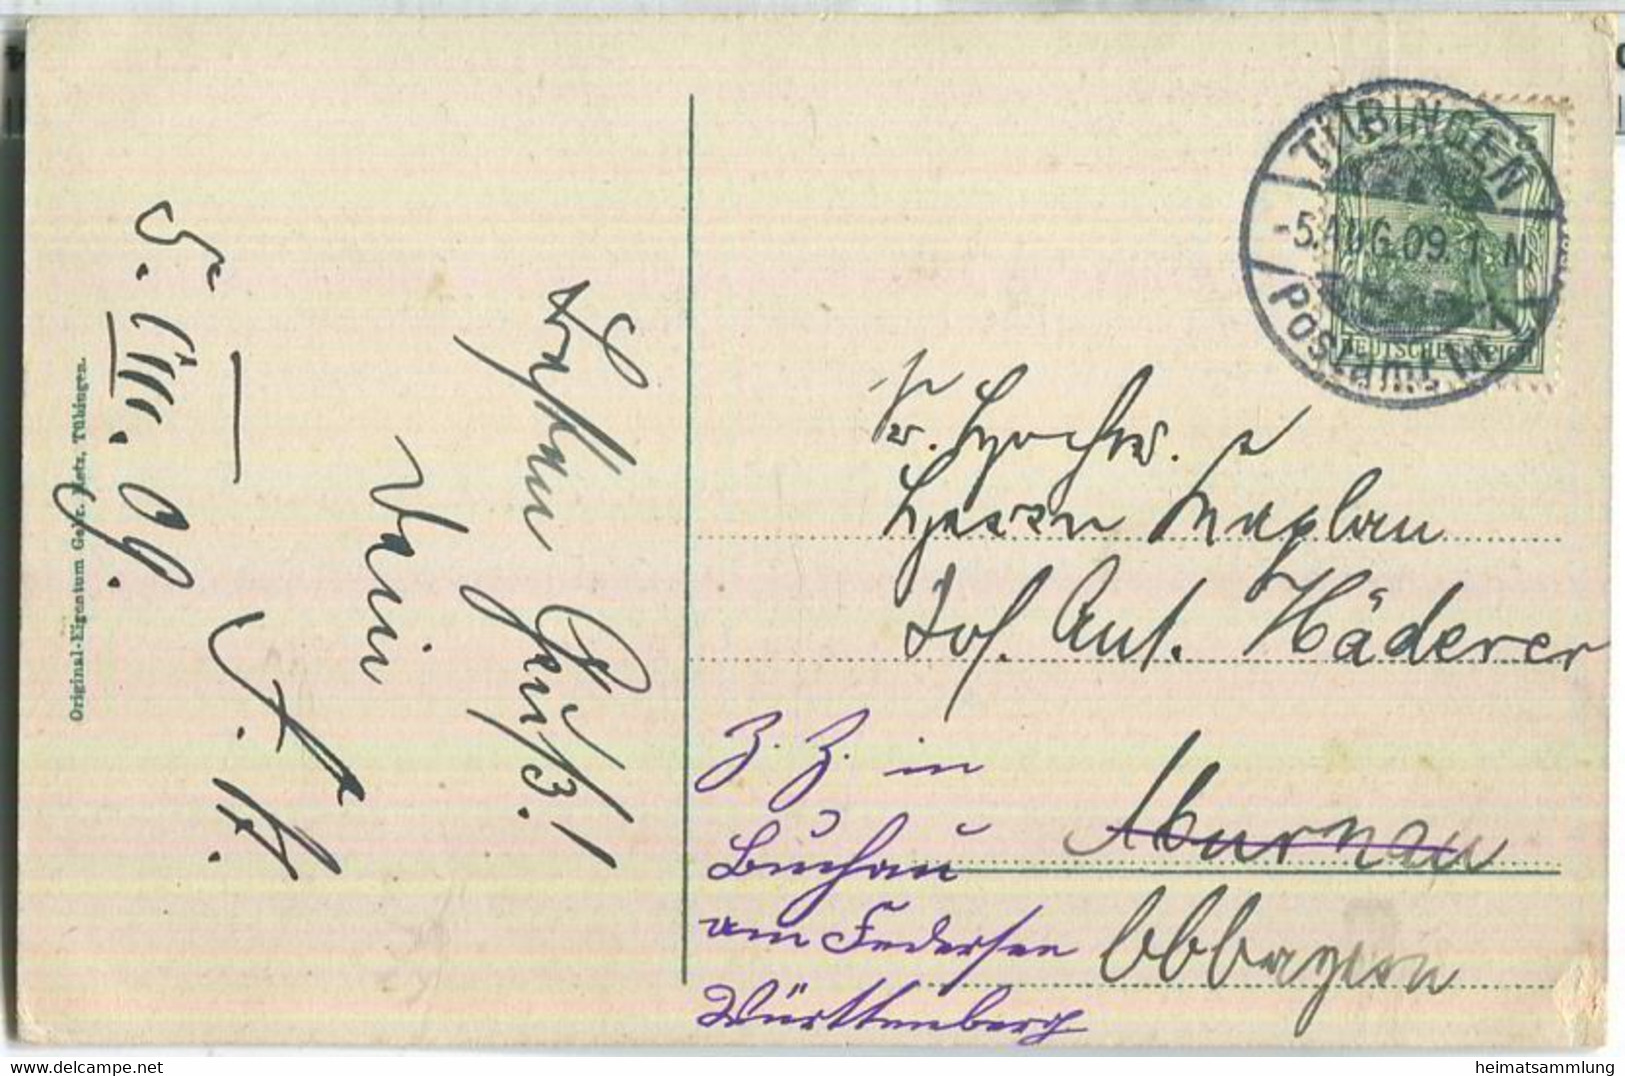 Original-Eigentum Gebr. Metz, Tübingen.
5. VIII. 09.
Besten Gruß!
TÜBINGEN
5.AUG.09. 1-N.
POSTAMT III
DEUTSCHES REICH
Sr. Hochw.
Herrn Kaplan
Jos. Ant. Häderer
Murnau
Obbayern
Z. Z. in
Buchau
am Federsee
Württemberg
heimatsammlung